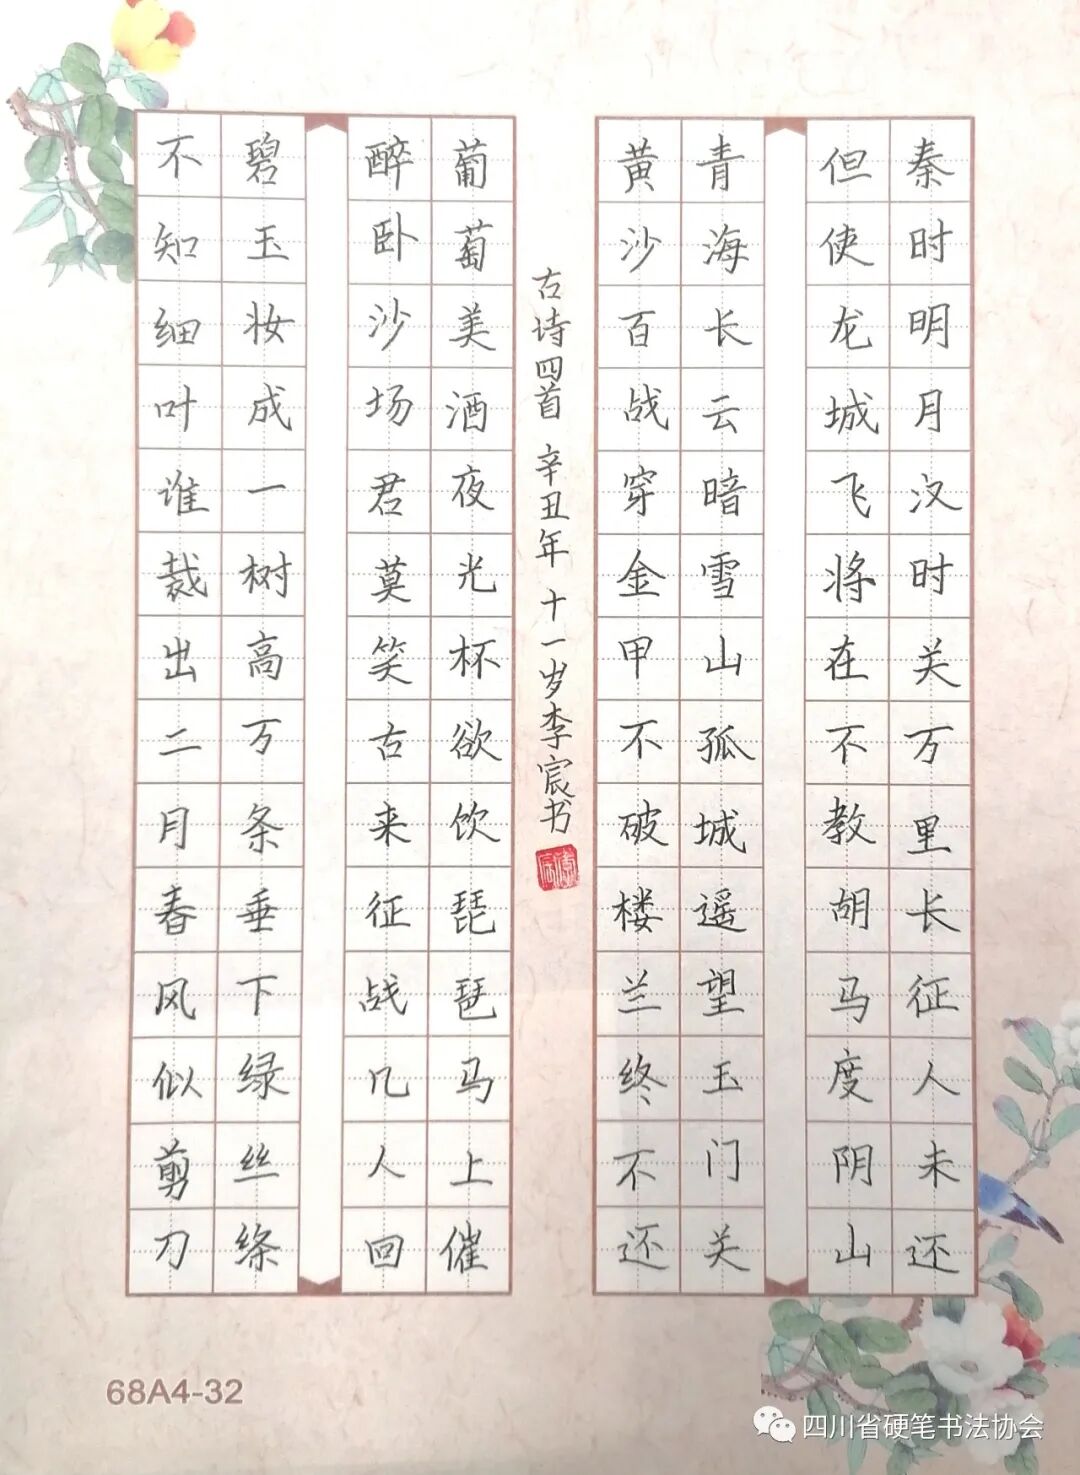 秦时明月汉时关万里长征人未还
但使龙城飞将在不教胡马度阴山
青海长云暗雪山孤城遥望玉门关
黄沙百战穿金甲不破楼兰终不还
古诗四首 辛丑年 十一岁李宸书
葡萄美酒夜光杯欲饮琵琶马上催
醉卧沙场君莫笑古来征战几人回
碧玉妆成一树高万条垂下绿丝绦
不知细叶谁裁出二月春风似剪刀
68A4-32
四川省硬笔书法协会